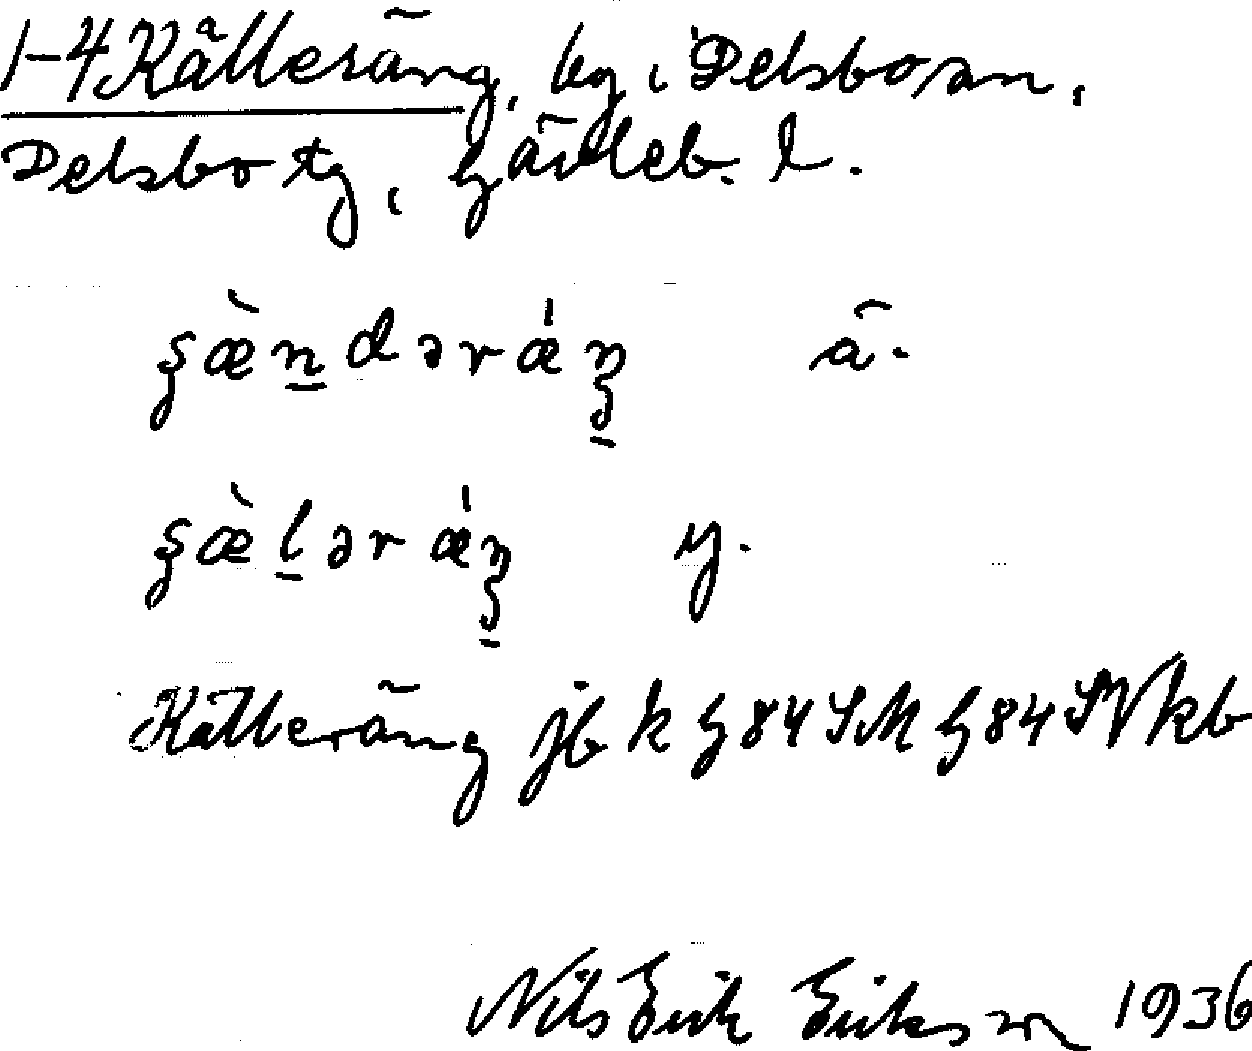 1-4 Källeräng, by i Delsbo sn,
Delsbo tg, Gävleb. l.
ʂæ̀n̲dərǽŋ̲ ä.
ʂæ̀l̲ərǽŋ̲ y.
Källeräng jb k G84SM G84SV kb
Nils Erik Eriksson 1936